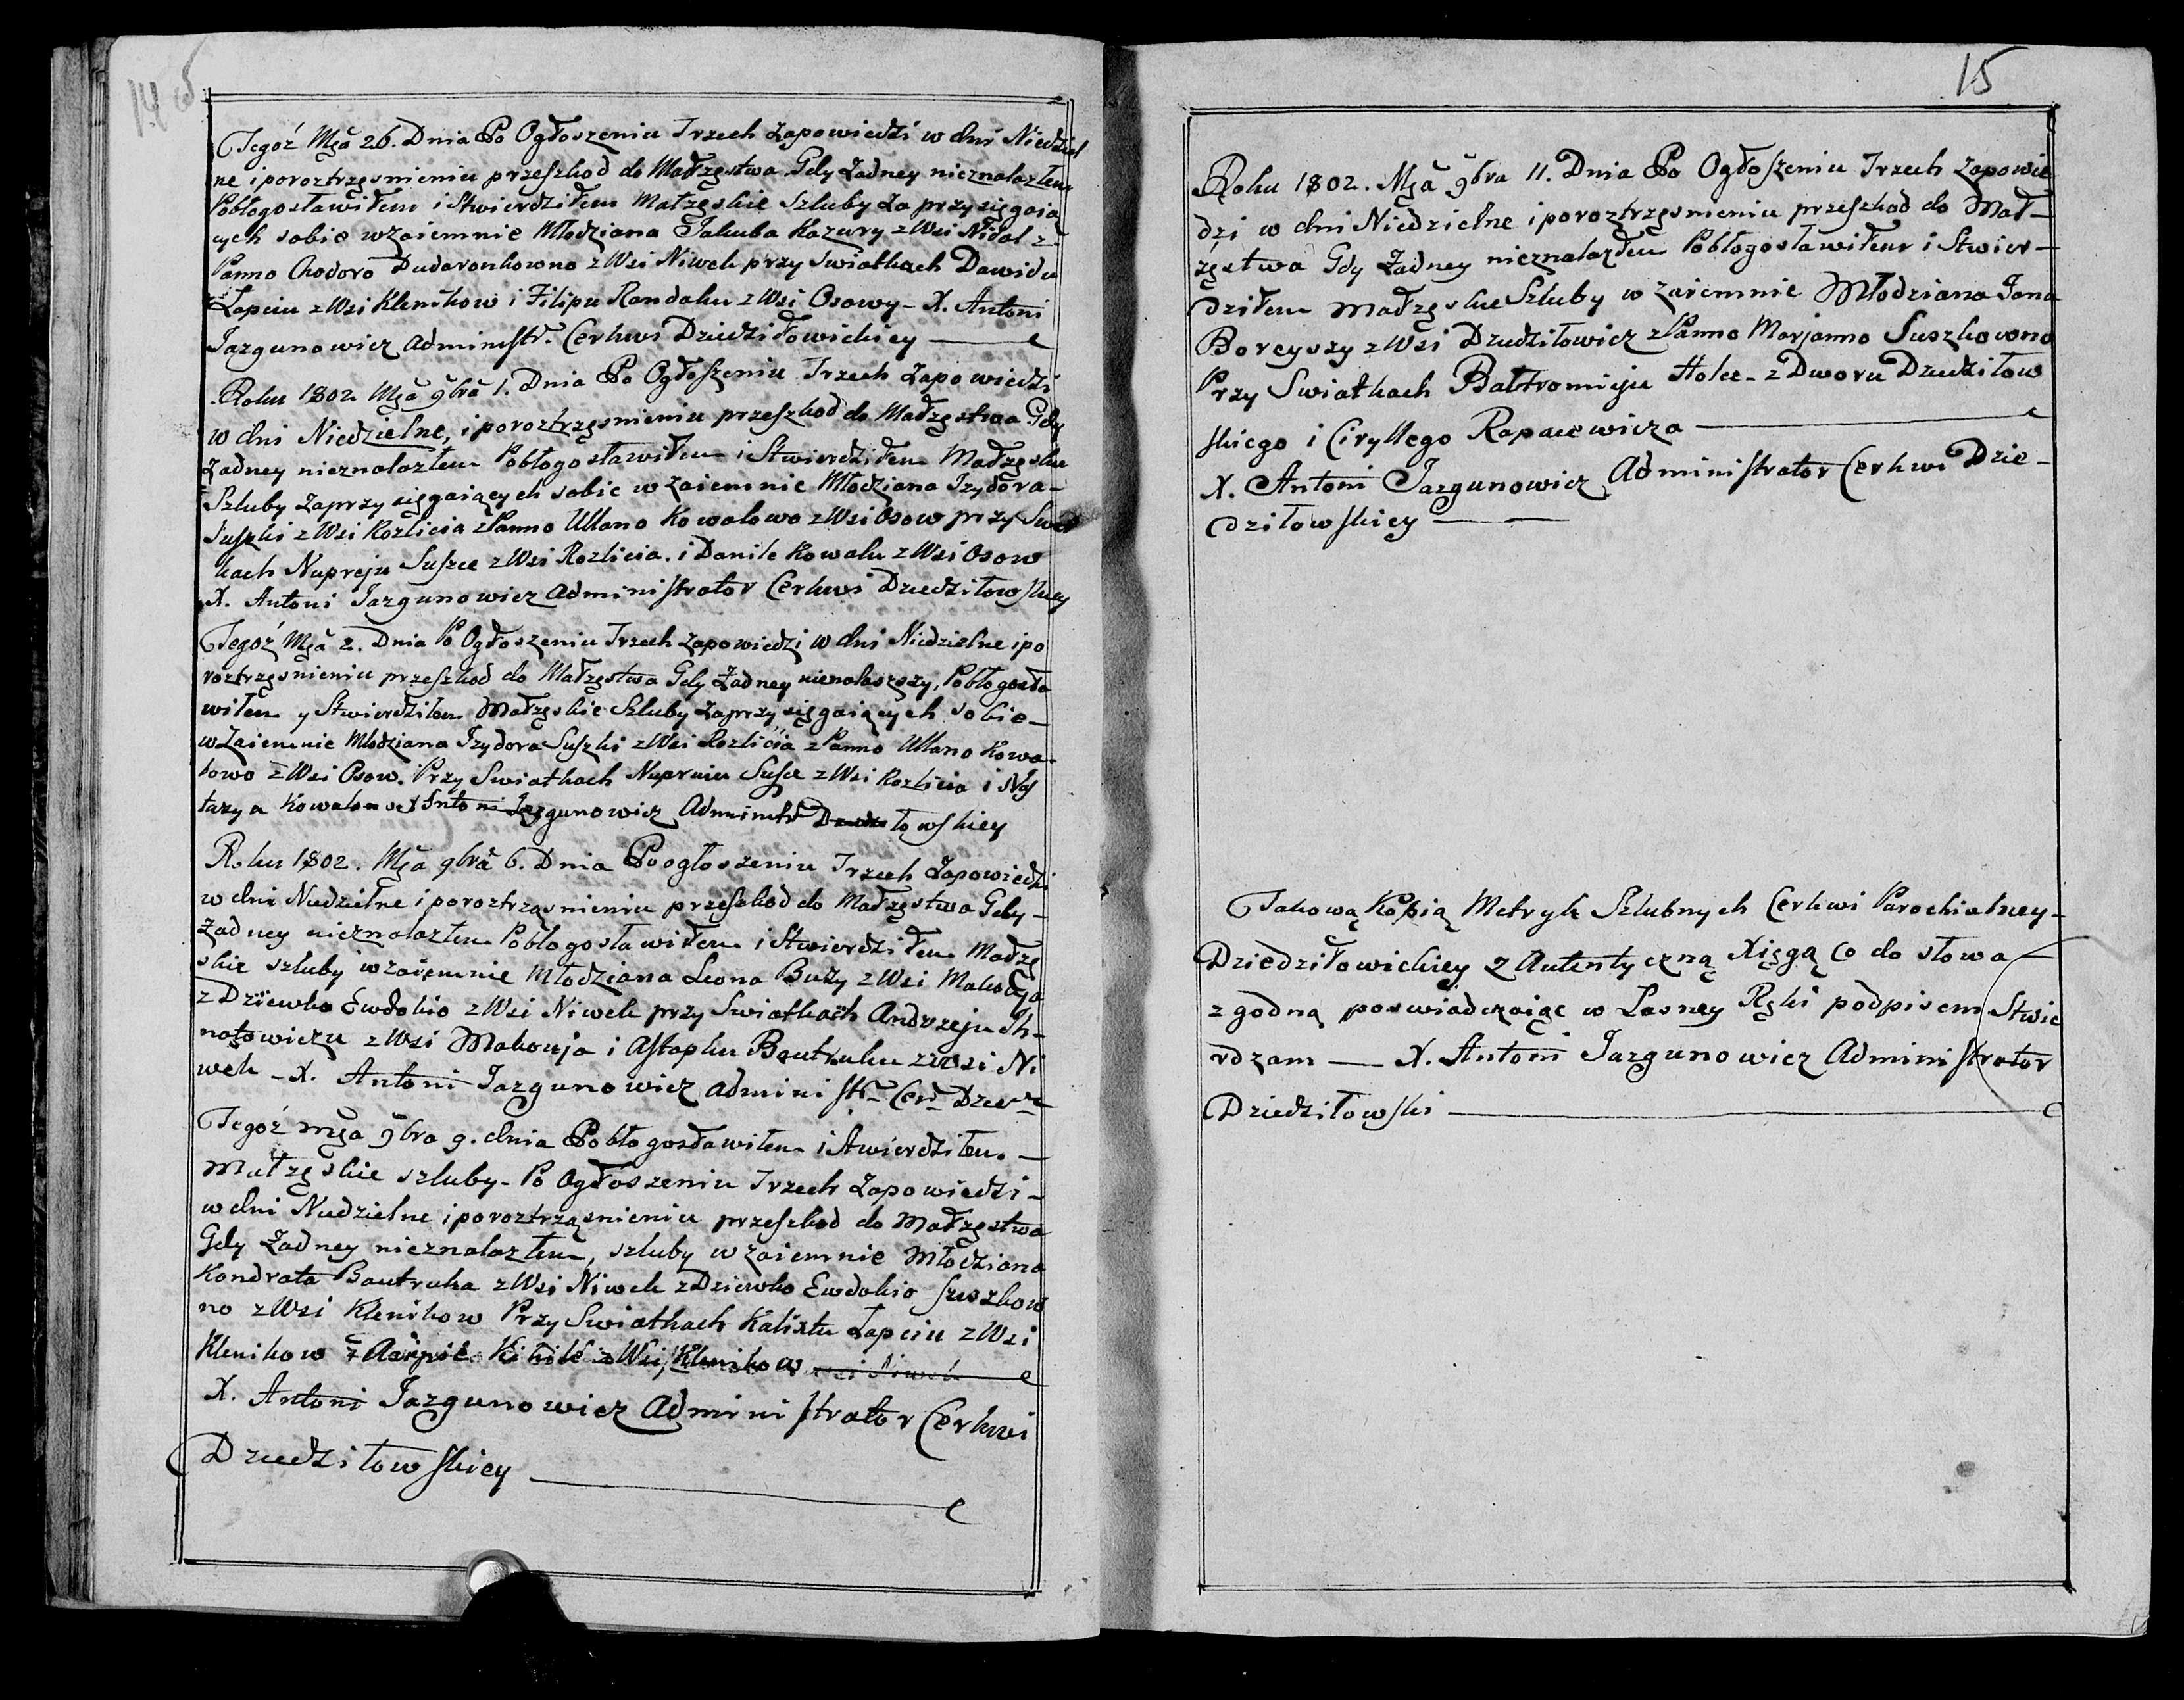 14 об
Tegoż Mca 26. Dnia Po Ogłoszeniu Trzech Zapowiedzi w dni Niedziel
ne i poroztrzęsnieniu przeszkod do Małzęstwa Gdy Zadney nieznalazłem
Pobłogosławiłem i Stwierdziłem Małzęskie Szluby Zaprzysięgaią
cych sobie wzaiemnie Młodziana Jakuba Kazury z Wsi Nidal z
Panno Chodoro Dudaronkowno z Wsi Niwek przy Swiatkach Dawidu
Łapciu z Wsi Klenikow i Filipu Randaku z Wsi Osowy - X. Antoni
Jazgunowicz Administr. Cerkwi Dziedziłowickiey
Roku 1802 Mca 9bra 1. Dnia Po Ogłoszeniu Trzech Zapowiedzi
w dni Niedzielne, i poroztrzęsnieniu przeszkod do Małzęstwa Gdy
Zadney nieznalazłem Pobłogosławiłem i Stwierdziłem Małzęskie
Szluby Zaprzysięgaiących sobie wzaiemnie Młodziana Izydora
Suszki z Wsi Rozlicia z Panno Ullano Kowalowo z Wsi Osow przy Swiat
kach Nupreju Suszce z Wsi Rozlicia. i Danile Kowalu z Wsi Osow
X. Antoni Jazgunowicz Administrator Cerkwi Dziedziłowskiey
Tegoż Mca 2. Dnia Po Ogłoszeniu Trzech Zapowiedzi w dni Niedzielne i po
roztrzęsnieniu przeszkod do Małzęstwa Gdy Zadney nienalaszszy, Pobłogosła
wiłem y Stwierdziłem Małzęskie Szluby Zaprzysięgaiących sobie
wzaiemnie Młodziana Izydora Suszki z Wsi Rozlicia z Panno Ullano Kowa
lowo z Wsi Osow. Przy Swiatkach Nupreiu Susce z Wsi Rozlicia i
Kowal X Antoni Jazgunowicz Administr
Roku 1802. Mca 9bra 6. Dnia Po ogłoszeniu Trzech Zapowiedzi
w dni Niedzielne i poroztrząsnieniu przeszkod do Małzęstwa Gdy
Zadney nieznalazłem Pobłogosławiłem i Stwierdziłem Małzę
skie szluby wzaiemnie Młodziana Leona Buzy z Wsi Makouja
z Dziewko Ewdokio z Wsi Niwek przy Swiatkach Andrzeju Ih
natowiczu z Wsi Makouja i Astapku Bautruku z Wsi Ni
wek - X. Antoni Jazgunowicz Administr Cer
Tegoż mca 9bra 9. dnia Pobłogosławiłem i Stwierdziłem
Małzęskie szluby - Po Ogłoszeniu Trzech Zapowiedzi
w dni Niedzielne i poroztrząsnieniu przeszkod do Małzęstwa
Gdy Zadney nieznalazłem, szluby wzaiemnie Młodziana
Kondrata Bautruka z Wsi Niwek z Dziewko Ewdokio Suszkow
no z Wsi Klenikow Przy Swiatkach Kalixtu Łapciu z Wsi
Klenikow z Wsi Klenikow
X. Antoni Jazgunowicz Administrator Cerkwi
Dziedziłowskiey
15
Roku 1802. Mca 9bra 11. Dnia Po Ogłoszeniu Trzech Zapowie
dzi w dni Niedzielne i poroztrzęsnieniu przeszkod do Mał
zęstwa Gdy Zadney nieznalazłem Pobłogosławiłem i Stwier
dziłem Małzęskie Szluby wzaiemnie Młodziana Jana
Boreyszy z Wsi Dziedziłowicz z Panno Marjanno Suszkowno
Przy Swiatkach Bałtromieju Hołu - z Dworu Dziedziłow
skiego i Cirylego Rapacewicza
X. Antoni Jazgunowicz Administrator Cerkwi Dzie
dziłowskiey
Takową Kopią Metryk Szlubnych Cerkwi Parochialney
Dziedziłowickiey z Autentyczną Xięgą co do słowa
zgodną poswiadczaiąc w Łasney Ręki podpisem Stwie
rdzam - X. Antoni Jazgunowicz Administrator
Dziedziłowski